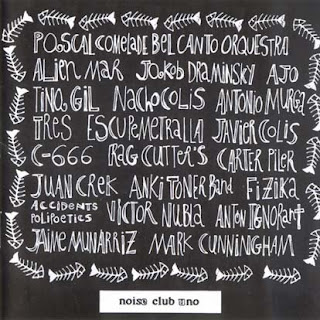 PASCAL COMELADE BEL CANTO ORQUESTRA
ALIEN MAR JAKOB DRAMINSKY AJO
TINA GIL NACHO COLIS ANTONIO MURGA
TRES ESCUPEMETRALLA JAVIER COLIS
C-666 RAG CUTTER'S CARTER PILER
JUAN CREK ANKI TONER BAND FIZIKA
ACCIDENTS POLIPOETICS VICTOR NUBLA ANTON IGNORANT
JAIME MUNARRIZ MARK CUNNINGHAM
noise club uno